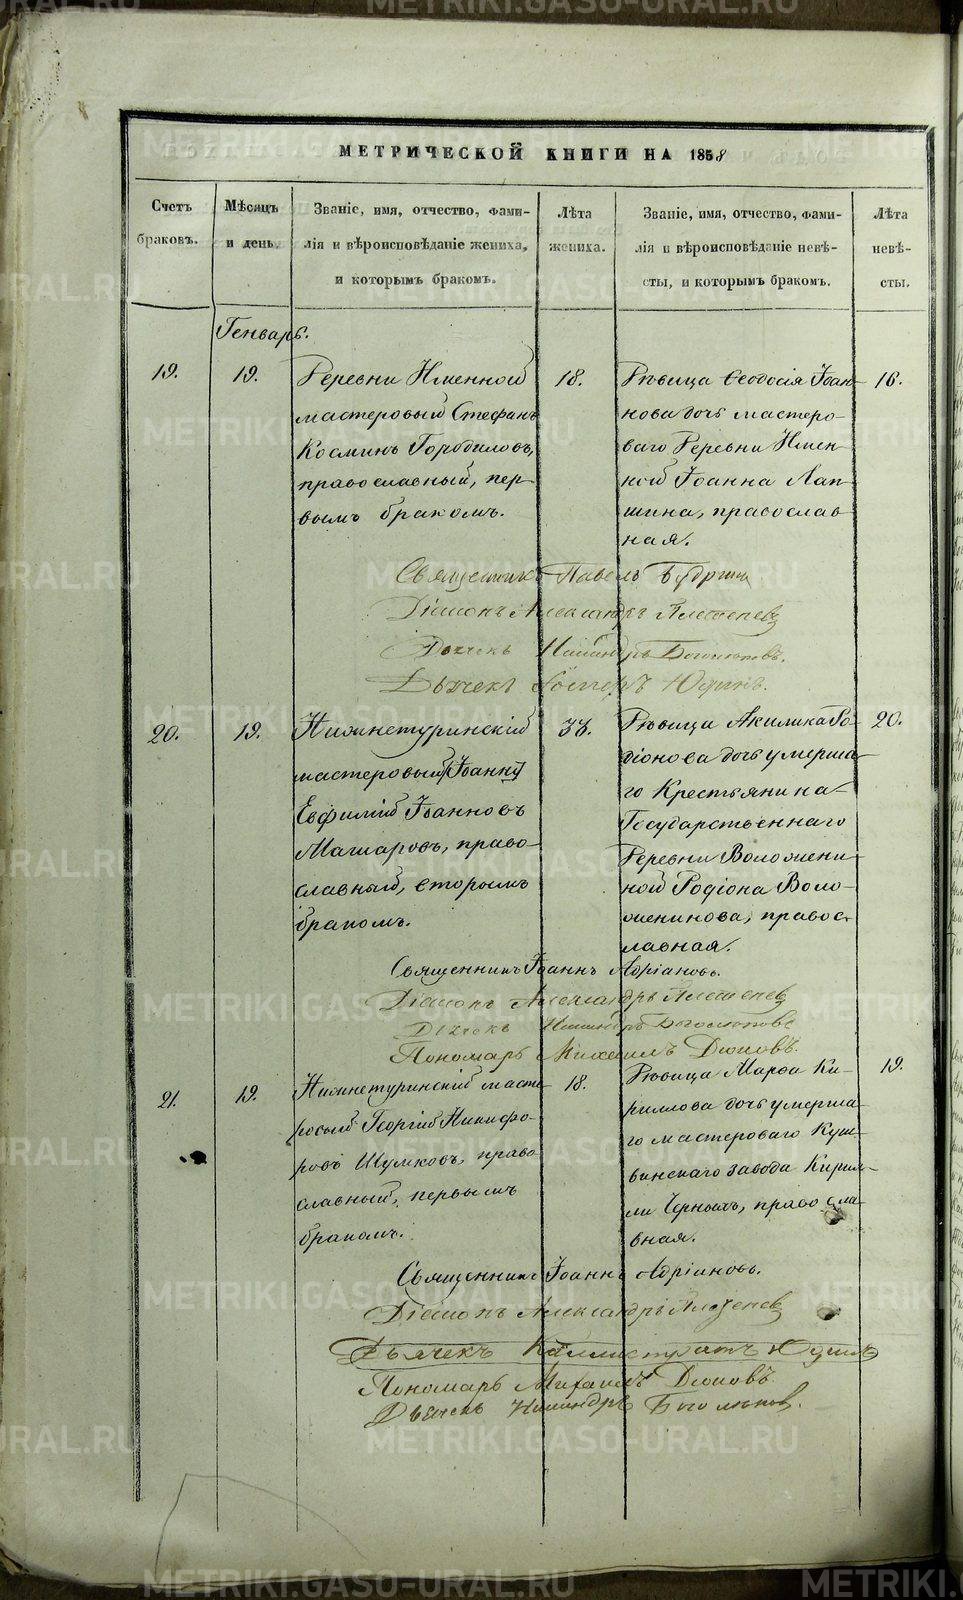 МЕТРИЧЕСКОЙ КНИГИ НА 1858
Счетъ
браковъ.
Мѣсяцъ
и день.
Званіе, имя, отчество, фами-
лія и вѣроисповѣданіе жениха,
и которымъ бракомъ.
Лѣта
жениха.
Званіе, имя, отчество, фами-
лія и вѣроисповѣданіе невѣ-
сты, и которымъ бракомъ.
Лѣта
невѣ-
сты.
Генварь.
19.
19.
Деревни Именной
мастеровый Стефанъ
Косминъ Городиловъ,
православный, пер-
вымъ бракомъ.
18.
Дѣвица Ѳеодосія Іоан-
нова дочь мастеро-
ваго Деревни Имен-
ной Іоанна Лап-
шина, православ
ная.
16.
Священникъ Павелъ
Діаконъ Александръ
Дьячекъ Никандръ
Дьячекъ Юдинъ.
20.
19.
Нижнетуринскій
мастеровый (Іоаннъ)
Евфимій Іоанновъ
Машаровъ, право-
славный, вторымъ
бракомъ.
33.
Дѣвица Акилина Ро-
діонова дочь умерша-
го Крестьянина
Государственнаго
Деревни Воложени-
ной Родіона Воло-
женинова, правос-
лавная.
20.
Священникъ Іоаннъ Адріановъ.
Діаконъ Александръ
Дьячекъ Никандръ
Пономарь Михаилъ Діоновъ.
21.
19.
Нижнетуринскій масте-
ровый Георгій Никифо-
ровъ Шумковъ, право-
славный, первымъ
бракомъ.
18.
Дѣвица Марѳа Ки-
риллова дочь умерша-
го мастероваго Куш-
винскаго завода Кирил-
ли Черныхъ, правосла-
вная.
19.
Священникъ Іоаннъ Адріановъ.
Діаконъ Александръ
Дьячекъ Каллистратъ Юдинъ
Пономарь Михаилъ Діоновъ
Дьячекъ Никандръ
METRIKI.GASO-URAL.RU